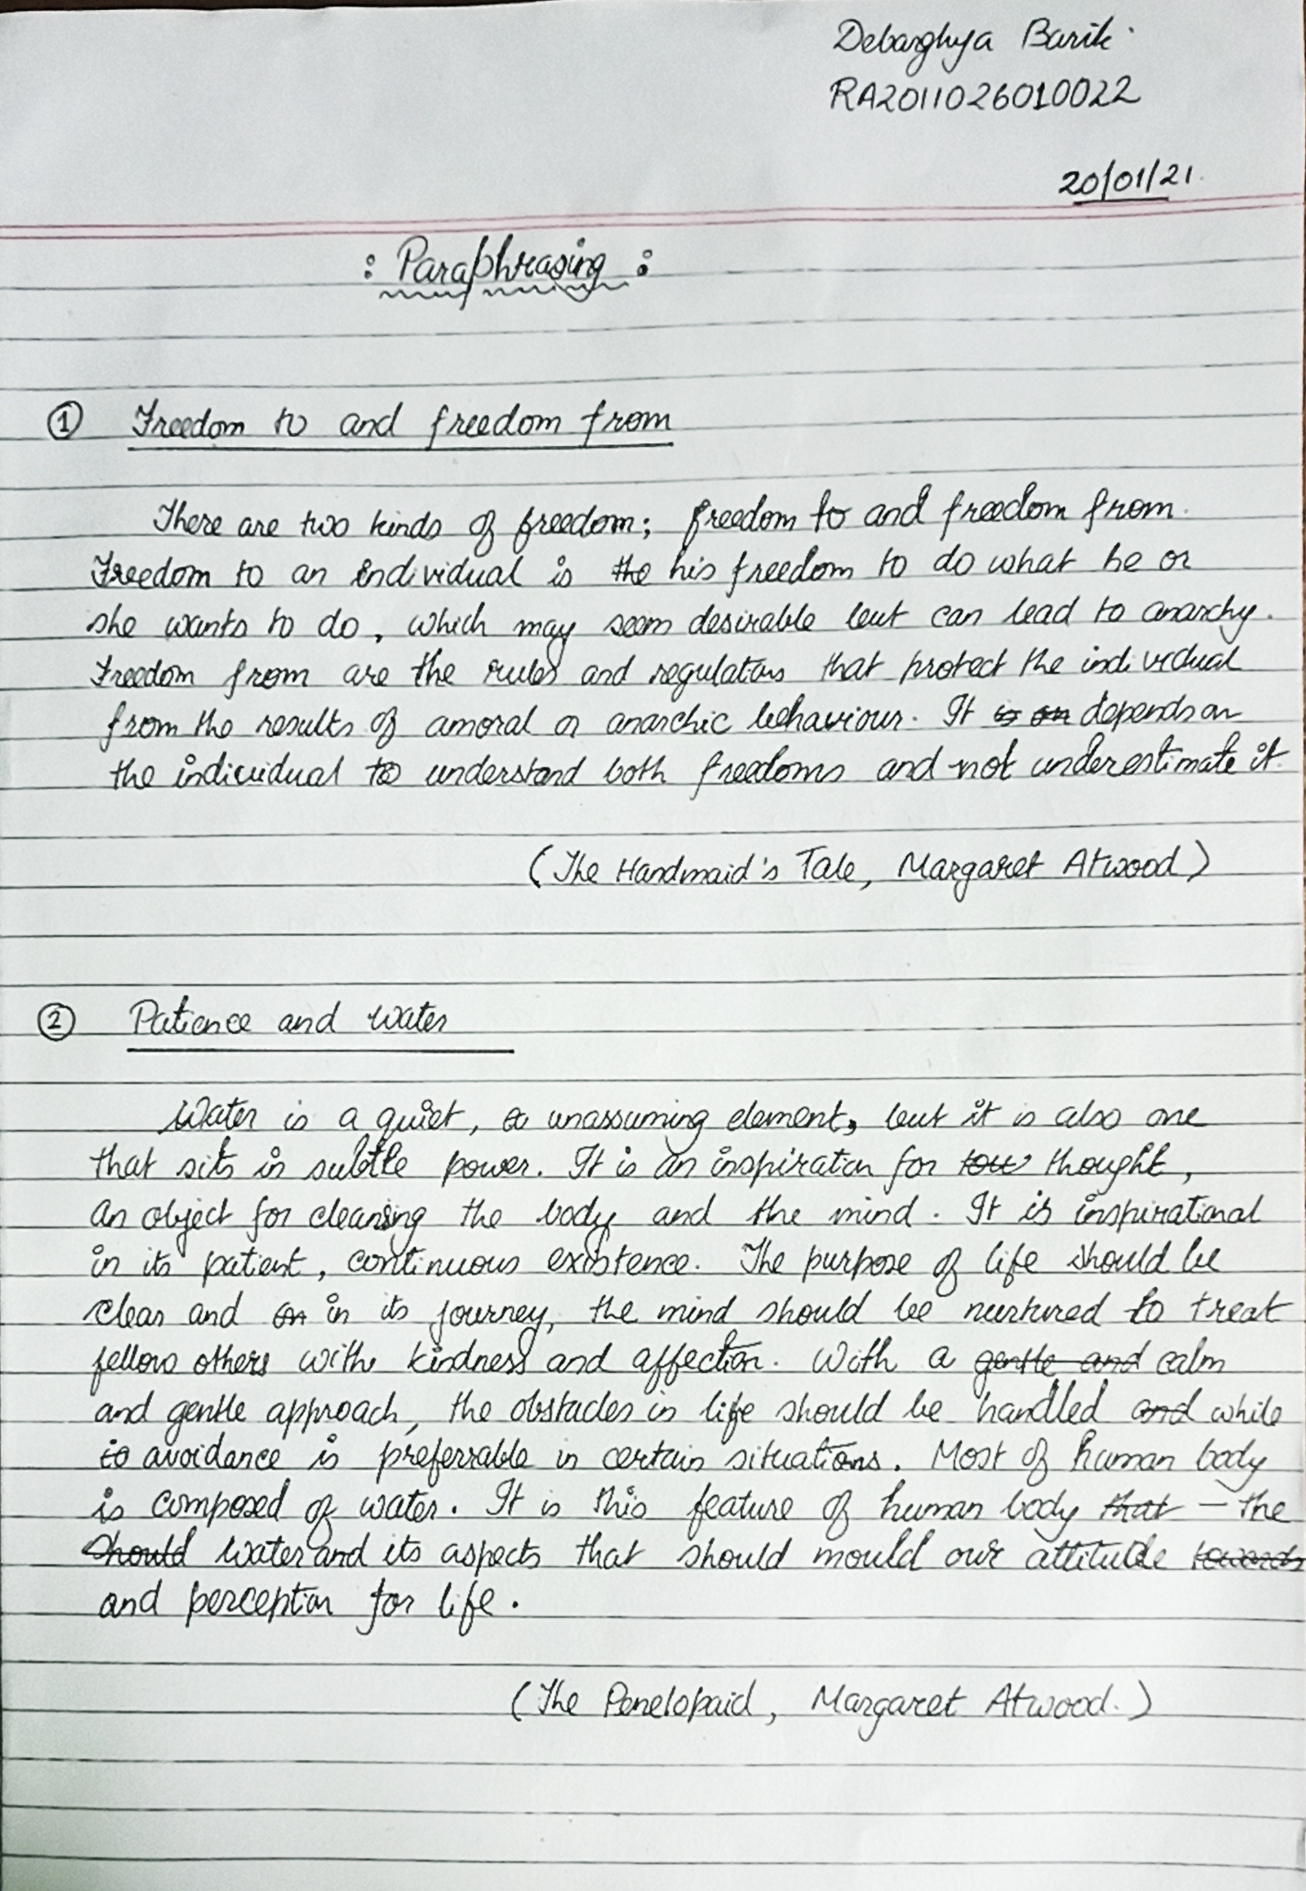 Debarghya Barik.
RA2011026010022
20/01/21.
: Paraphrasing :
① Freedom to and freedom from
There are two kinds of freedom; freedom to and freedom from.
Freedom to an individual is the his freedom to do what he or
she wants to do, which may seem desirable but can lead to anarchy.
Freedom from are the rules and regulations that protect the individual
from the results of amoral or anarchic behaviour. It is on depends on
the individual to understand both freedoms and not underestimate it.
(The Handmaid's Tale, Margaret Atwood)
② Patience and water
Water is a quiet, a unassuming element, but it is also one
that sits in subtle power. It is an inspiration for thought,
an object for cleansing the body and the mind. It is inspirational
in its patient, continuous existence. The purpose of life should be
clear and on in its journey, the mind should be nurtured to treat
fellow others with kindness and affection. With a gentle and calm
and gentle approach, the obstacles in life should be handled and while
to avoidance is preferrable in certain situations. Most of human body
is composed of water. It is this feature of human body that - the
should water and its aspects that should mould our attitude towards
and perception for life.
(The Penelopaid, Margaret Atwood.)